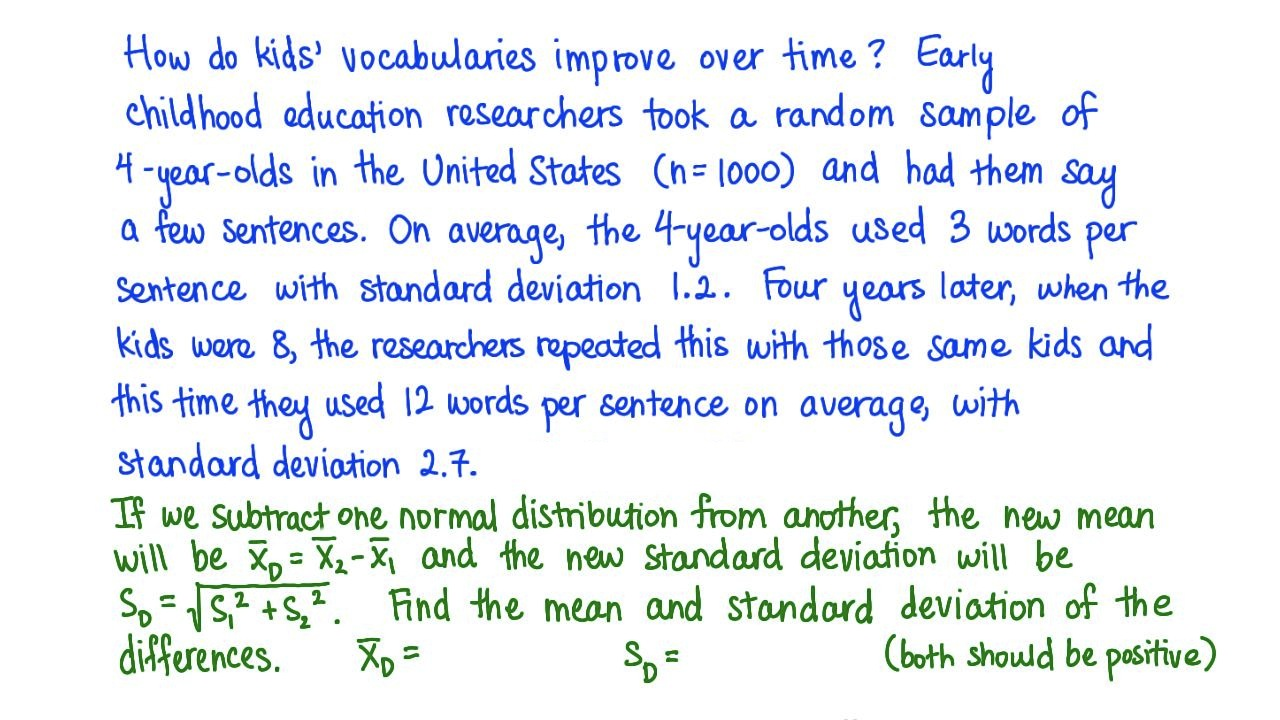 How do kids' vocabularies improve over time? Early
childhood education researchers took a random sample of
4-year-olds in the United States (n=1000) and had them say
a few sentences. On average, the 4-year-olds used 3 words per
sentence with standard deviation 1.2. Four years later, when the
kids were 8, the researchers repeated this with those same kids and
this time they used 12 words per sentence on average, with
standard deviation 2.7.
If we subtract one normal distribution from another, the new mean
will be x̄_D = x̄₂ - x̄₁ and the new standard deviation will be
S_D = √(S₁² + S₂²). Find the mean and standard deviation of the
differences. x̄_D = S_D = (both should be positive)